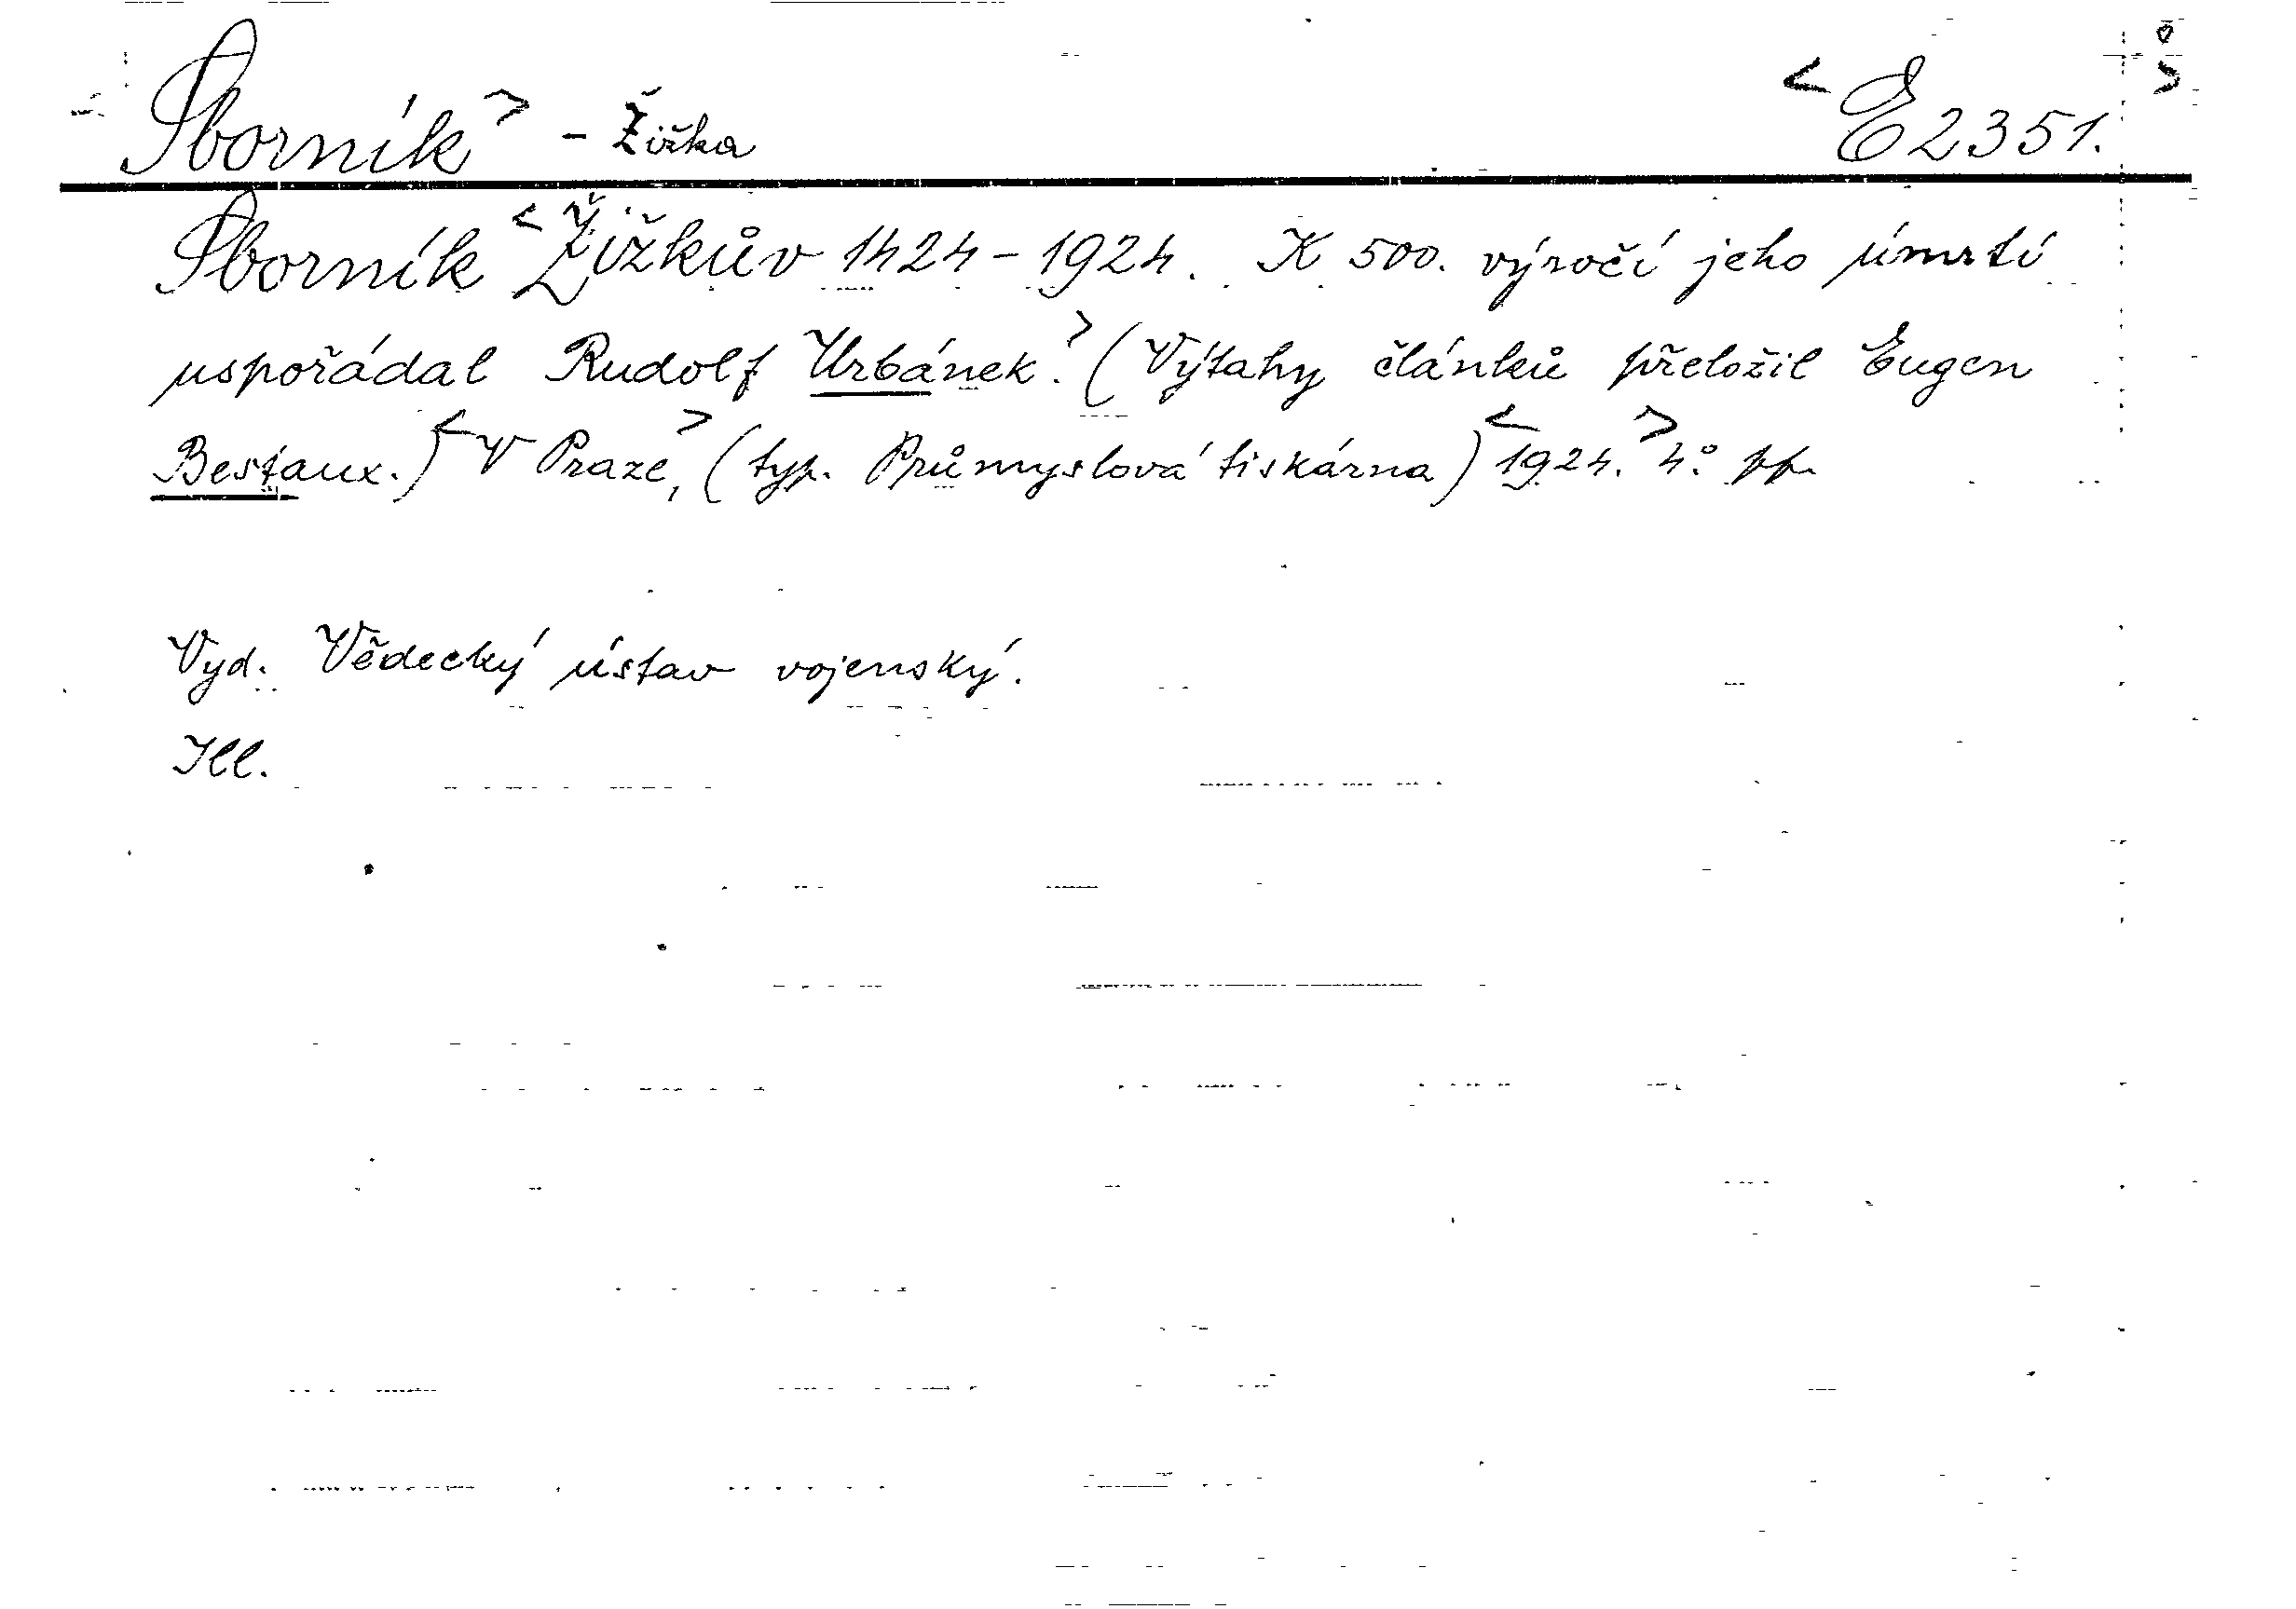 Sborník> - Žižka <E 2351.>
Sborník <Žižkův 1424-1924. K 500. výročí jeho úmrtí
uspořádal Rudolf Urbánek.> (Výtahy článků přeložil Eugen
Bestaux.) <V Praze,> (typ. Průmyslová tiskárna) <1924.> 4° pp.
Vyd. Vědecký ústav vojenský.
Ill.